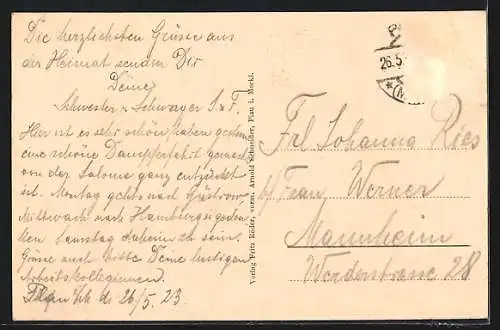 Die herzlichsten Grüsse aus
der Heimat senden Dir
Deine
Schwester u. Schwager
Hier ist es sehr schön, haben gestern
eine schöne Dampferfahrt gemacht
von der Salome ganz entzückt
ist. Montag gehts nach Güstrow
Mittwoch nach Hamburg u. geden-
ken Samstag daheim z. sein.
Grüsse auch bitte Deine lustigen
Arbeitskolleginnen.
Plau i/M. d. 26/5. 23.
Verlag Fritz Reier, vorm. Arnold Schneider, Plau i. Meckl.
26.5
Frl Johanna Ries
b/ Frau Werner
Mannheim
Werderstrasse 28